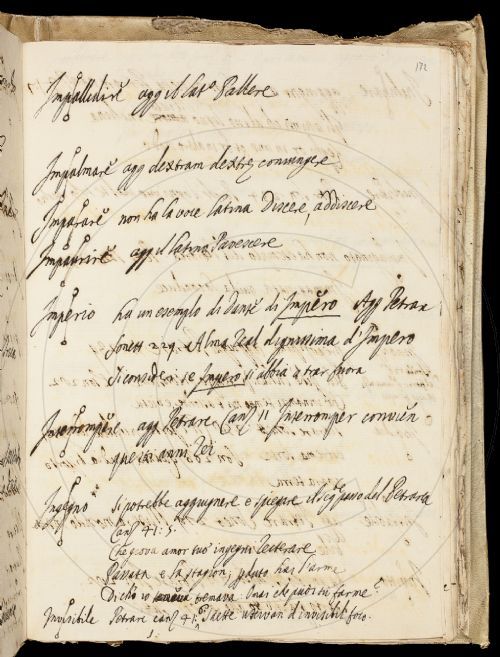 172
Impallidire agg il lat.o Pallere
Impalmare agg dextram dextrę coniungere
Imparare non ha la voce latina Discere, addiscere
Impaurire agg il latino Pavescere
Imperio ha un esempio di Dante di Impero Agg Petrar
sonett 229. Alma real dignissima d'Impero
si consideri se Impero si abbia a trar fuora
Interrompere agg Petrarc Canz 11 Interromper convien
quest anni rei
Ingegno si potrebbe aggiugnere e spiegare il seg.te passo del Petrarca
Canz 41: 5.
Che giova amor tuoi ingegni ritentare
Passata e la stagion, perduto hai l'arme
Di ch'io tremava: ormai che puoi tu farme?
Invisibile Petrarc canz 41: Saette uscivan d'invisibil foco.